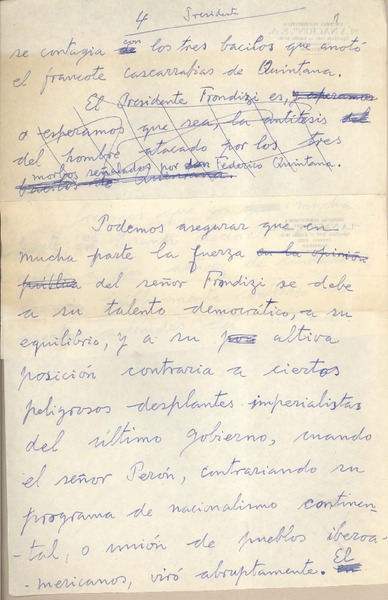 4 Presidente
se contagia con los tres bacilos que anotó
el francote cascarrabias de Quintana.
El Presidente Frondizi es, y esperamos
o esperamos que sea, la antítesis del
del hombre atacado por los tres
morbos señalados por don Federico Quintana.
Podemos asegurar que en
mucha parte la fuerza en la opinión
pública del señor Frondizi se debe
a su talento democrático, a su
equilibrio, y a su altiva
posición contraria a ciertos
peligrosos desplantes imperialistas
del último gobierno, cuando
el señor Perón, contrariando su
programa de nacionalismo continen-
-tal, o unión de pueblos iberoa-
-mericanos, viró abruptamente. El